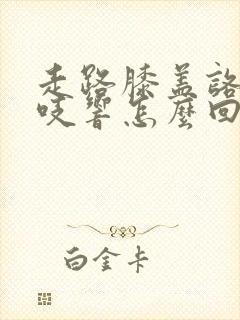 走路膝盖咯
吱響怎麼回
白金卡